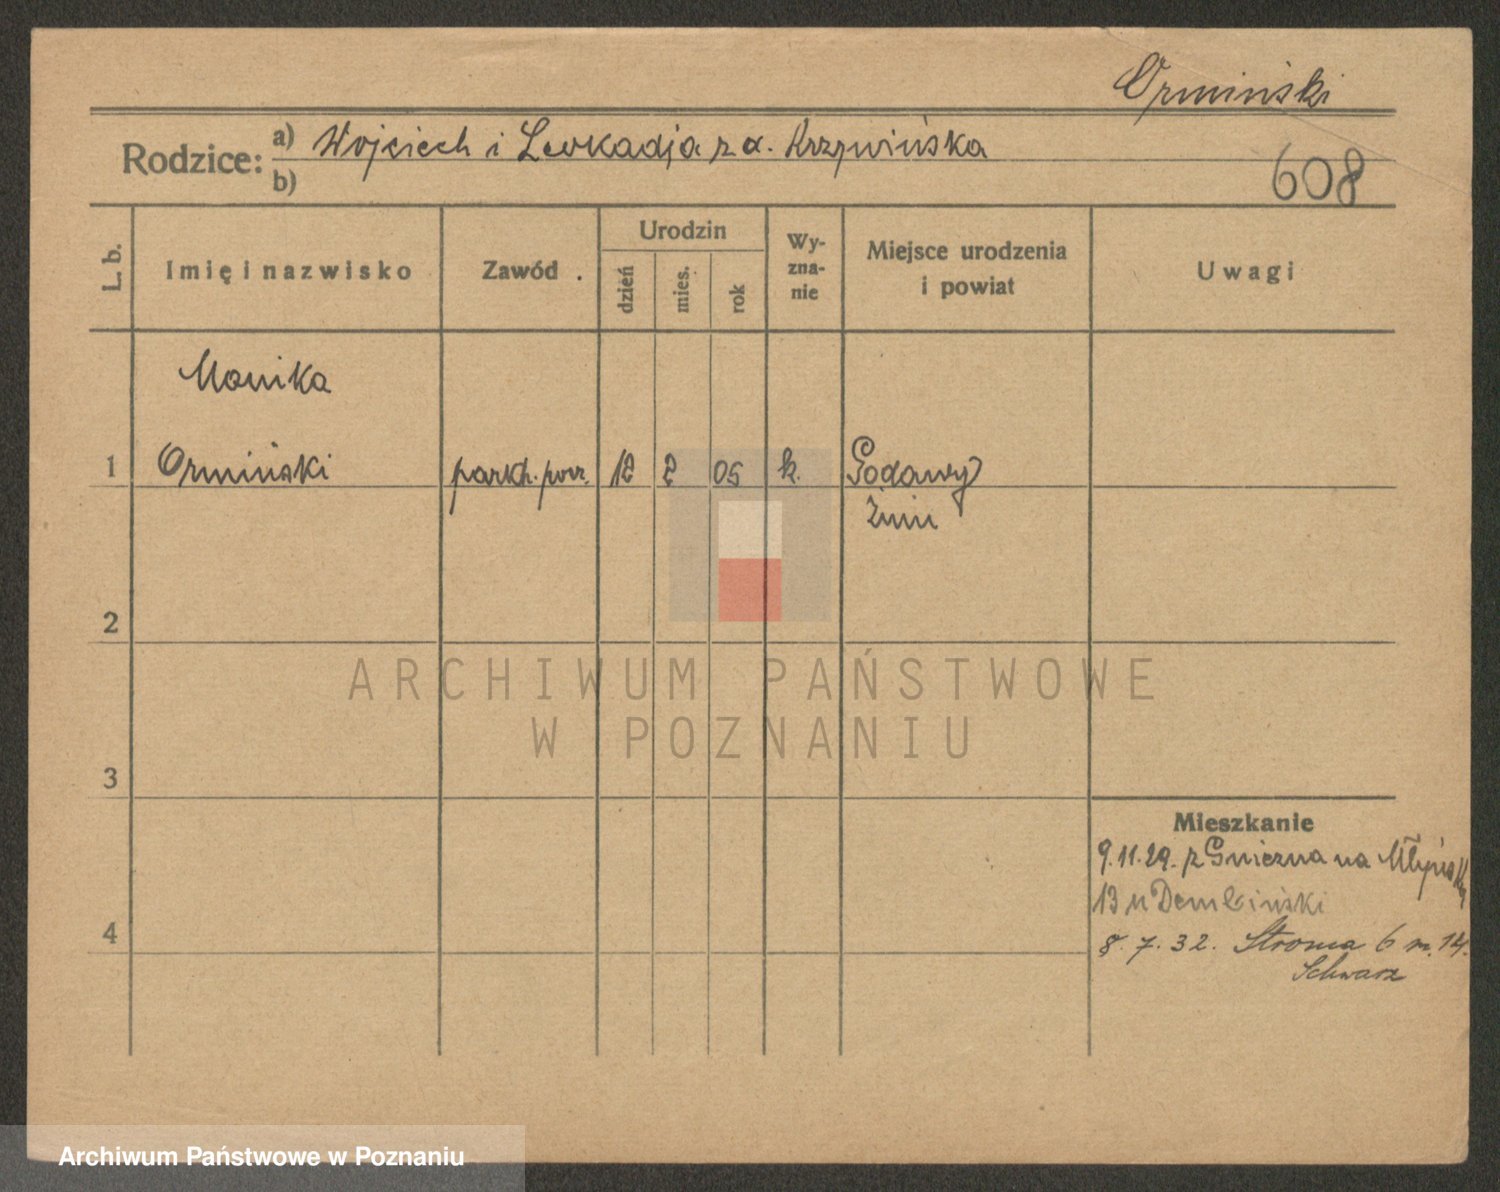 Ormiński
Rodzice: a) Wojciech i Leokadja z d. Krzywińska
b)
608
L. b.
Imię i nazwisko
Zawód
Urodzin
dzień
mies.
rok
Wy-
zna-
nie
Miejsce urodzenia
i powiat
Uwagi
Monika
1 Ormiński 12 2 05 k. Godawy
Żnin
2
ARCHIWUM PAŃSTWOWE
W POZNANIU
3
Mieszkanie
9.11.29. z Gniezna na
13 u Dembiński
4
8.7.32. Stroma 6 m. 14.
Schwarz
Archiwum Państwowe w Poznaniu